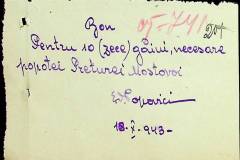 Bon
05741 204
Pentru 10 (zece) găini, necesare
popotei Preturei Mostovoi
E. Popovici
18-X-943-